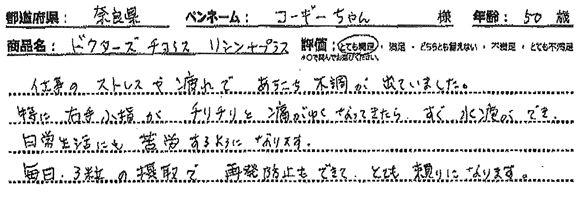 都道府県： 奈良県 ペンネーム： コーギーちゃん 様 年齢： 50 歳
商品名： ドクターズチョイス リシンプラス 評価： とても満足 ・ 満足 ・ どちらとも言えない ・ 不満足 ・ とても不満足
※○で囲んでお選びください。
仕事の ストレスや 疲れで あちこち 不調が 出ていました。
特に 右手小指が チリチリと 痛がゆくなってきたら すぐ 水疱ができ、
日常生活にも 苦労するようになります。
毎日、3粒の 摂取で 再発防止もできて、とても 頼りになります。